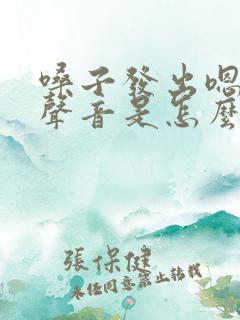 嗓子發出嗯
聲音是怎麼
張保健
未經同意禁止轉載